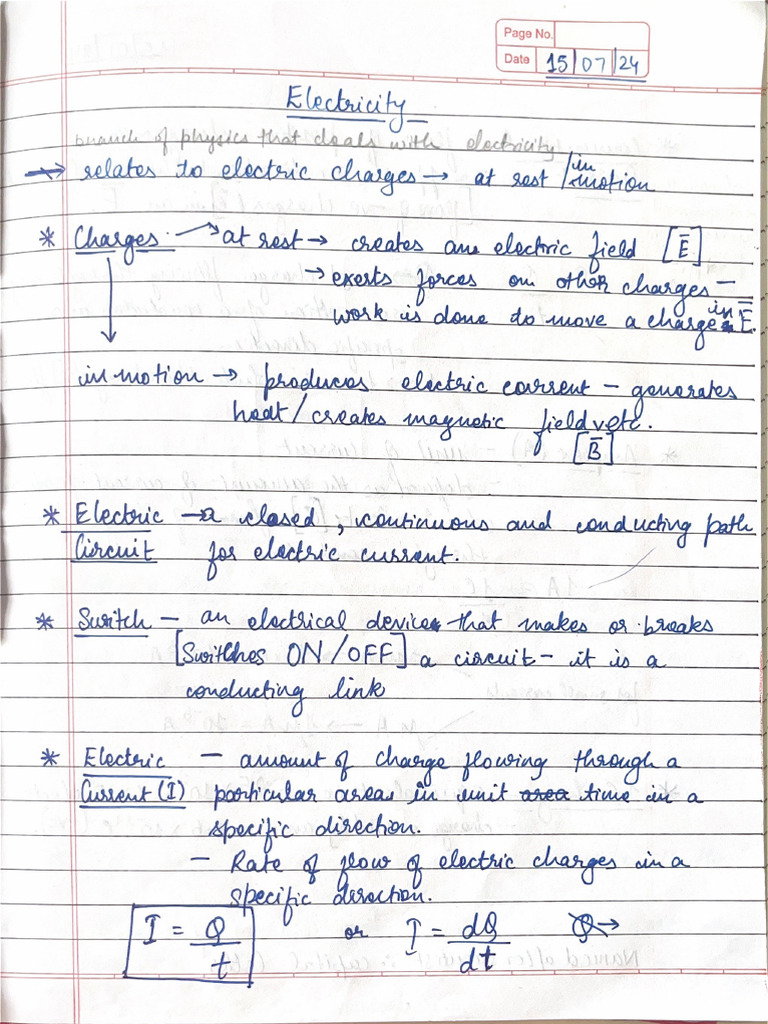 Page No.
Date 15/07/24
Electricity
branch of physics that deals with electricity
→ relates to electric charges → at rest / in motion
* Charges → at rest → creates an electric field [E̅]
→ exerts forces on other charges –
work is done to move a charge in E̅.
in motion → produces electric current – generates
heat/creates magnetic field etc.
[B̅]
* Electric → a closed, continuous and conducting path
Circuit for electric current.
* Switch – an electrical device that makes or breaks
[Switches ON/OFF] a circuit – it is a
conducting link
* Electric – amount of charge flowing through a
Current (I) particular area in unit area time in a
specific direction.
– Rate of flow of electric charges in a
specific direction.
I = Q/t or I = dQ/dt Q →